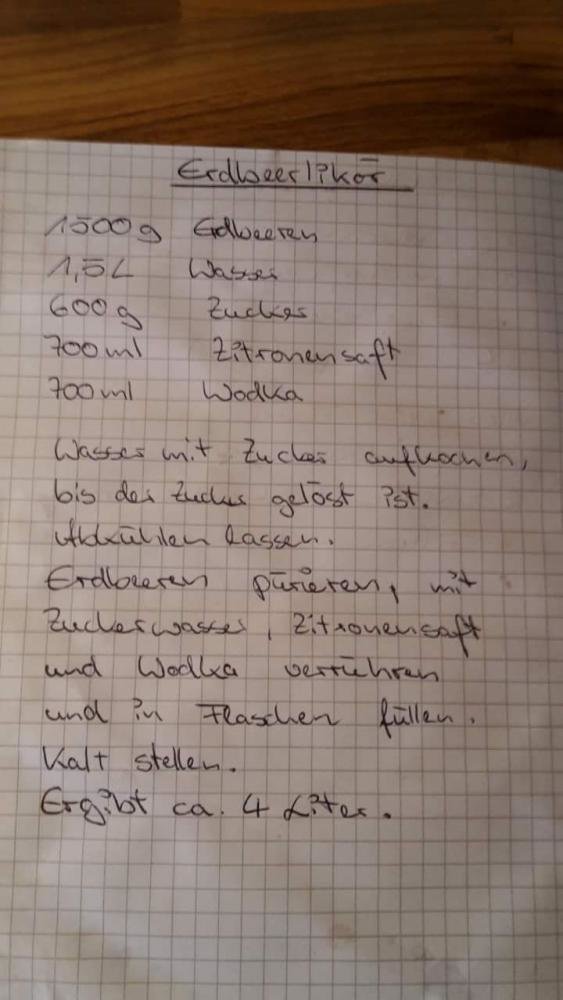 Erdbeerlikör
1500g Erdbeeren
1,5L Wasser
600g Zucker
700ml Zitronensaft
700ml Wodka
Wasser mit Zucker aufkochen,
bis der Zucker gelöst ist.
Abkühlen lassen.
Erdbeeren pürieren, mit
Zuckerwasser, Zitronensaft
und Wodka verrühren
und in Flaschen füllen.
Kalt stellen.
Ergibt ca. 4 Liter.